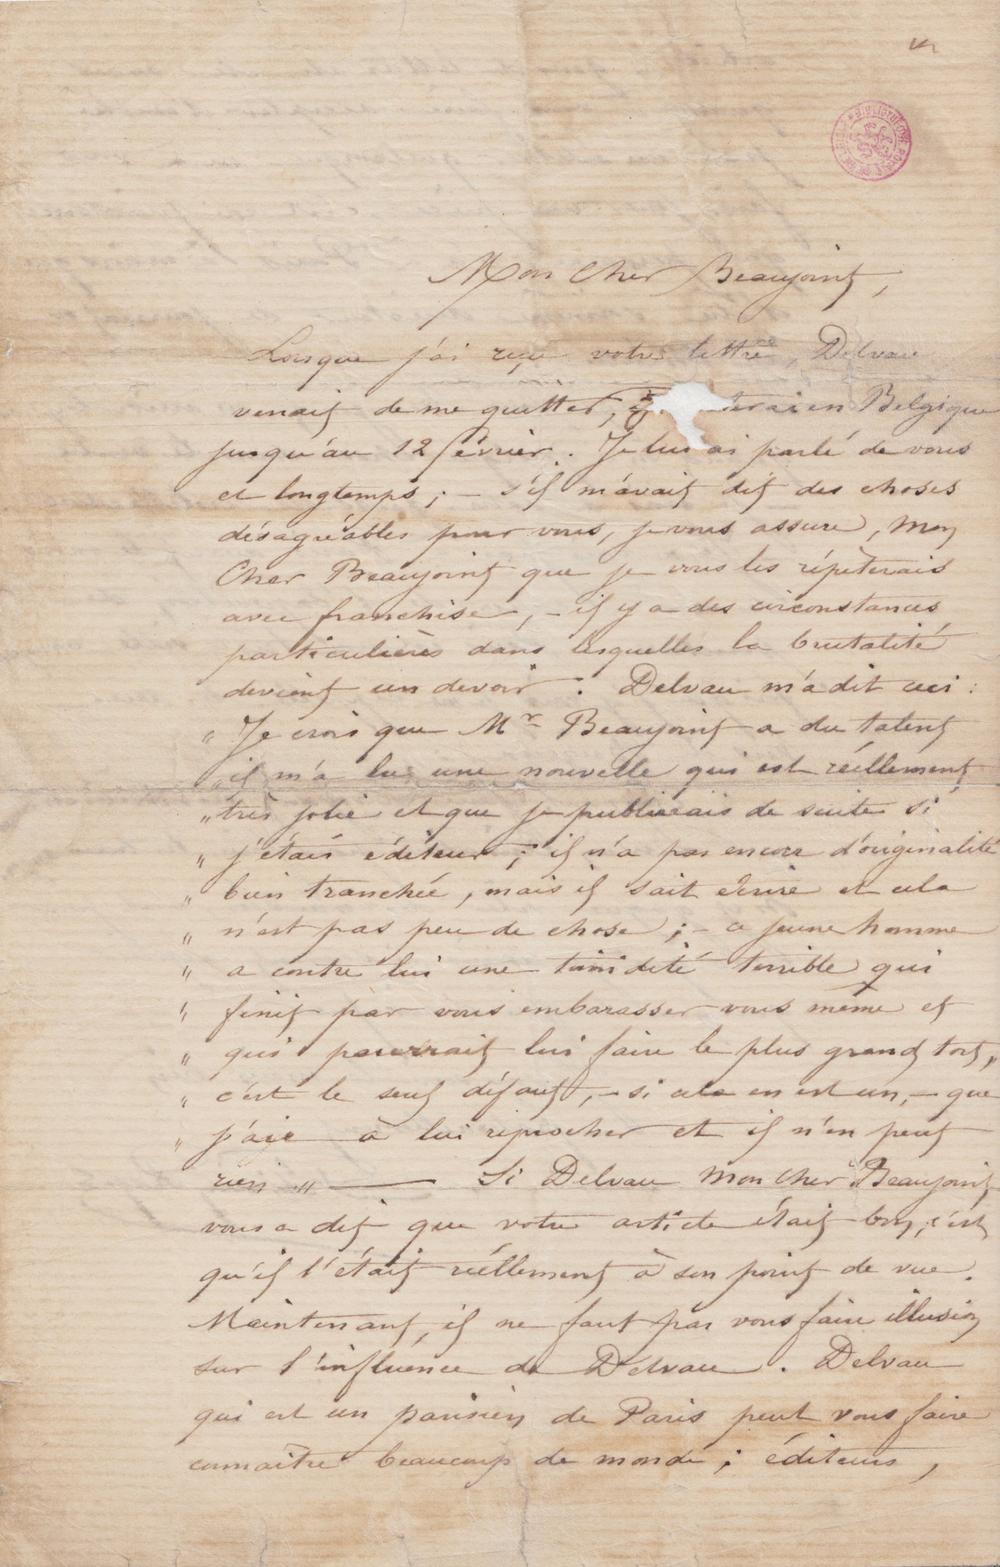 Mon Cher Beaujoint,
Lorsque j'ai reçu votre lettre, Delvau
venait de me quitter, en Belgique
jusqu'au 12 février. Je lui ai parlé de vous
et longtemps ; – s'il m'avait dit des choses
désagréables pour vous, je vous assure, mon
Cher Beaujoint que je vous les répèterais
avec franchise, – il y a des circonstances
particulières dans lesquelles la brutalité
devient un devoir. Delvau m'a dit ceci :
" Je crois que Mr Beaujoint a du talent
" il m'a lu une nouvelle qui est réellement
" très jolie et que je publierais de suite si
" j'étais éditeur ; il n'a pas encore d'originalité
" bien tranchée, mais il sait écrire et cela
" n'est pas peu de chose ; – ce jeune homme
" a contre lui une timidité terrible qui
" finit par vous embarasser vous même et
" qui pourrait lui faire le plus grand tort,
" c'est le seul défaut, – si cela en est un, – que
" j'aie à lui reprocher et il n'en peut
rien " — Si Delvau mon cher Beaujoint
vous a dit que votre article était bon, c'est
qu'il l'était réellement à son point de vue.
Maintenant, il ne faut pas vous faire illusion
sur l'influence de Delvau. Delvau
qui est un parisien de Paris peut vous faire
connaitre beaucoup de monde ; éditeurs,